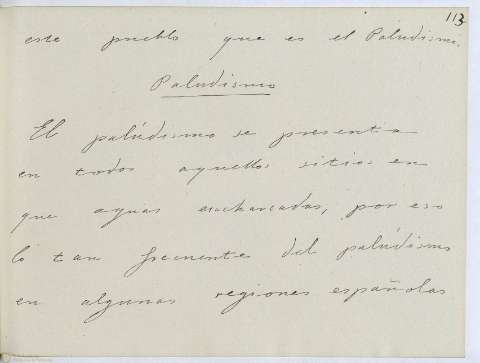 113
este pueblo que es el Paludismo.
Paludismo
El palúdismo se presenta
en todos aquellos sitios en
que aguas encharcadas, por eso
lo tan frecuente del palúdismo
en algunas regiones españolas